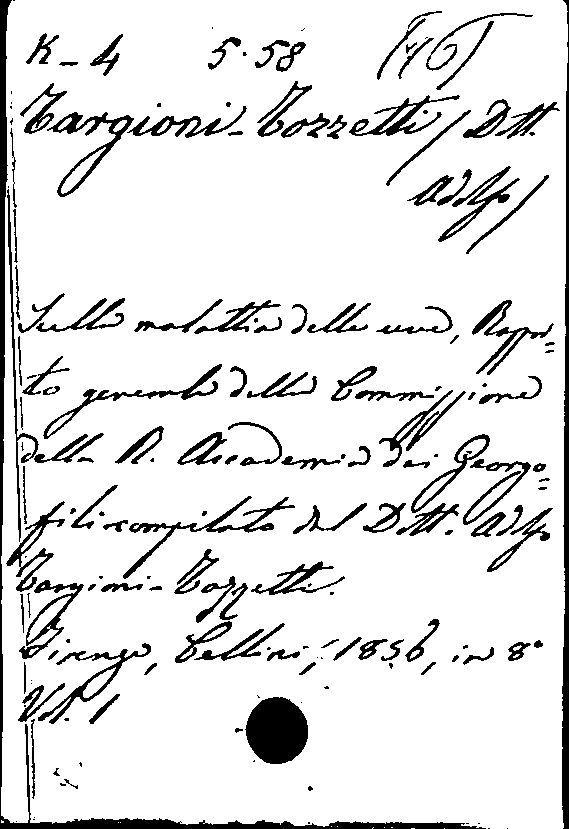 K-4 5.58
Targioni-Tozzetti / Dott.
Adolfo /
Sulla malattia delle uve, Rappor=
to generale della Commissione
della R. Accademia dei Georgo=
fili compilato dal Dott. Adolfo
Targioni-Tozzetti.
Firenze, Cellini, 1856, in 8°
Vol. 1